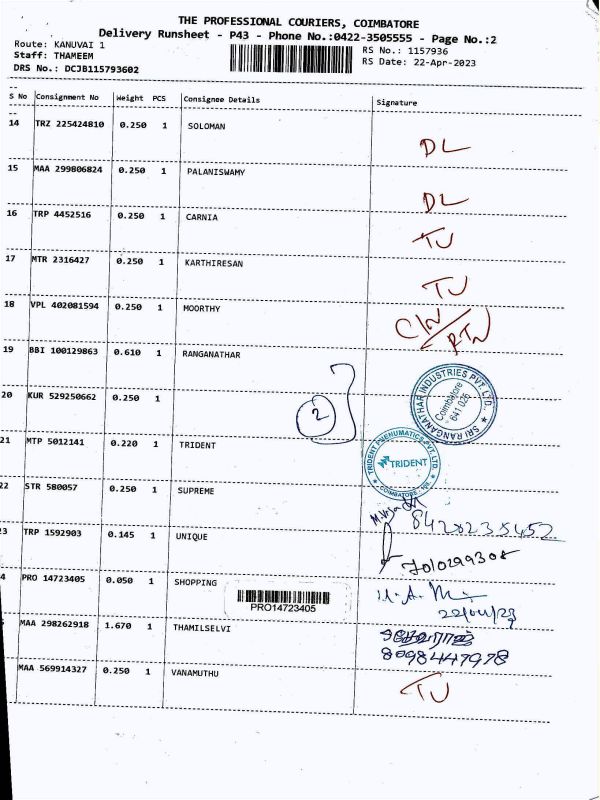 THE PROFESSIONAL COURIERS, COIMBATORE
Delivery Runsheet - P43 - Phone No.:0422-3505555 - Page No.:2
Route: KANUVAI 1
Staff: THAMEEM
DRS No.: DCJB115793602
RS No.: 1157936
RS Date: 22-Apr-2023
S No Consignment No Weight PCS Consignee Details Signature
14 TRZ 225424810 0.250 1 SOLOMAN DL
15 MAA 299806824 0.250 1 PALANISWAMY DL
16 TRP 4452516 0.250 1 CARNIA TU
17 MTR 2316427 0.250 1 KARTHIRESAN TU
18 VPL 402081594 0.250 1 MOORTHY
RTN
19 BBI 100129863 0.610 1 RANGANATHAR
SRI RANGANATHAR INDUSTRIES PVT. LTD.
Coimbatore
641 026
20 KUR 529250662 0.250 1
2
21 MTP 5012141 0.220 1 TRIDENT
TRIDENT PNEUMATICS PVT. LTD.
TRIDENT
22 STR 580057 0.250 1 SUPREME
23 TRP 1592903 0.145 1 UNIQUE
4 PRO 14723405 0.050 1 SHOPPING
PRO14723405
22/04/23
MAA 298262918 1.670 1 THAMILSELVI
8098447978
MAA 569914327 0.250 1 VANAMUTHU TU